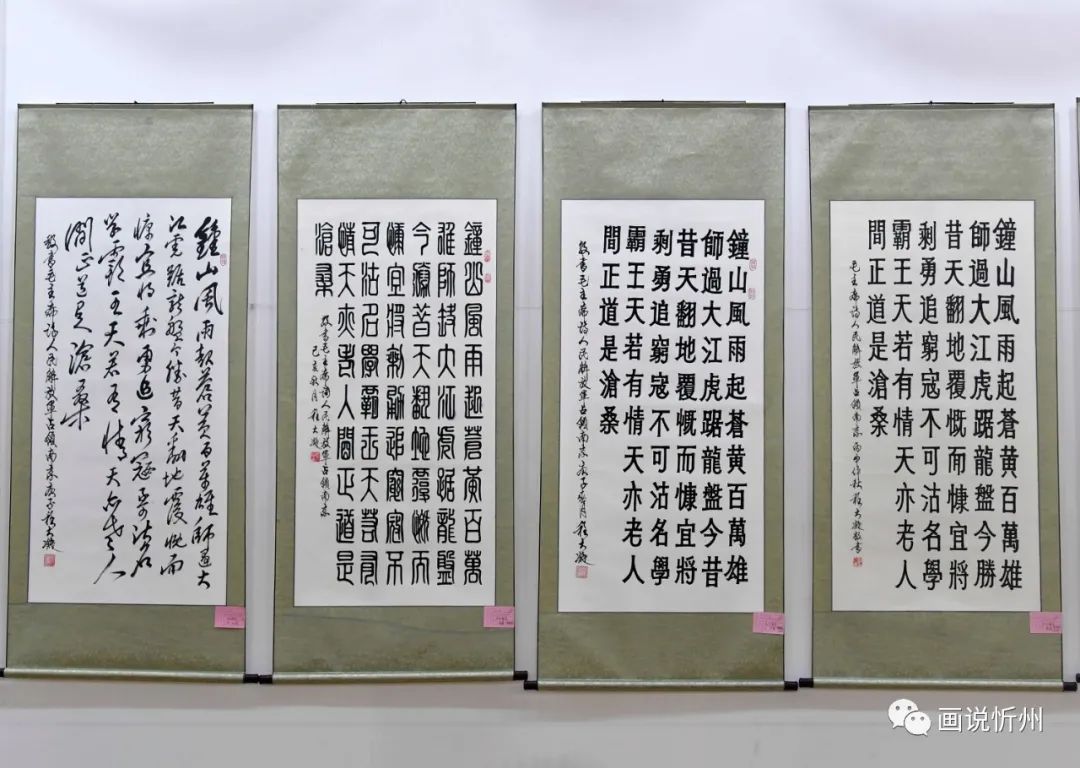 鐘山風雨起蒼黃百萬雄師過大
江虎踞龍盤今勝昔天翻地覆慨而
慷宜將剩勇追窮寇不可沽名
學霸王天若有情天亦老人
間正道是滄桑
敬書毛主席詩人民解放軍占領南京庚子程大凝
鐘山風雨起蒼黃百萬
雄師過大江虎踞龍盤
今勝昔天翻地覆慨而
慷宜將剩勇追窮寇不
可沽名學霸王天若有
情天亦老人間正道是
滄桑
敬書毛主席詩人民解放軍占領南京
己亥秋月程大凝
鐘山風雨起蒼黃百萬雄
師過大江虎踞龍盤今昔
昔天翻地覆慨而慷宜將
剩勇追窮寇不可沽名學
霸王天若有情天亦老人
間正道是滄桑
敬書毛主席詩人民解放軍占領南京庚子月程大凝
鐘山風雨起蒼黃百萬雄
師過大江虎踞龍盤今勝
昔天翻地覆慨而慷宜將
剩勇追窮寇不可沽名學
霸王天若有情天亦老人
間正道是滄桑
毛主席詩人民解放軍占領南京丙申仲秋程大凝敬書
画说忻州